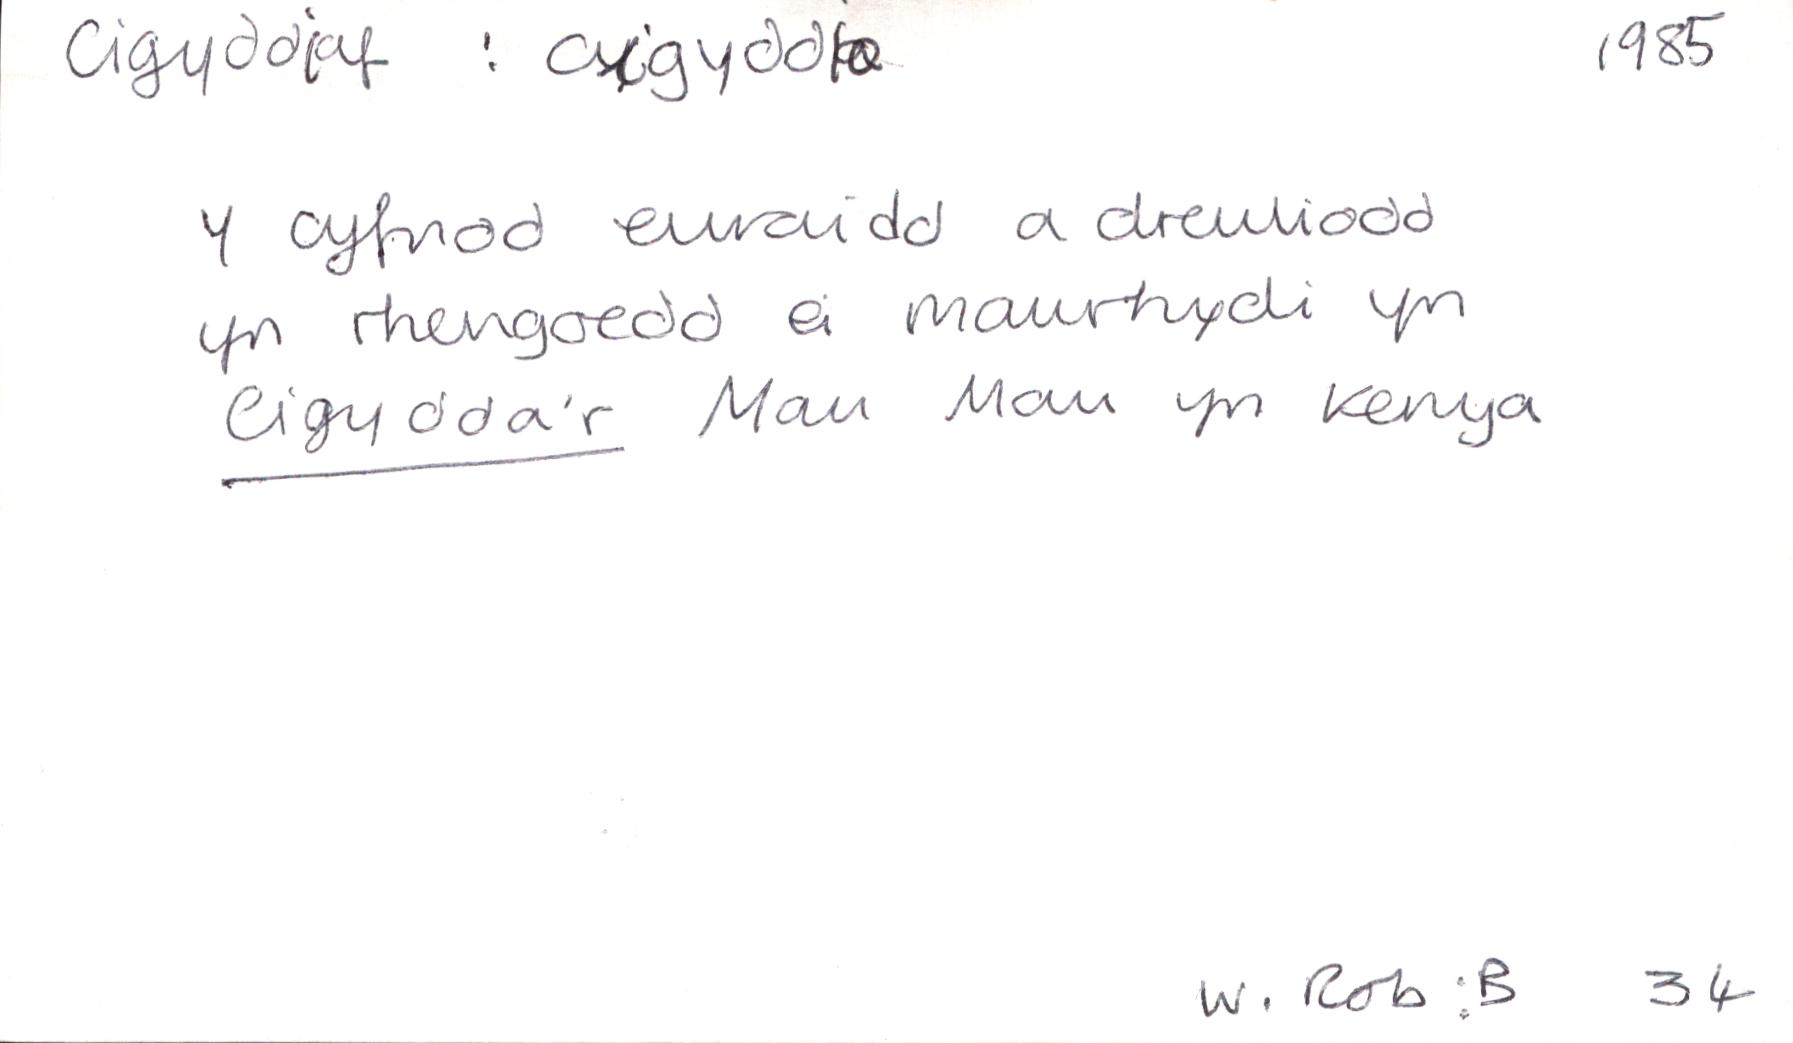 Cigyddiaf : cigyddio 1985
Y cyfnod euraidd a dreuliodd
yn rhengoedd ei mawrhydi yn
Cigydda'r Mau Mau yn Kenya
W. Rob : B 34